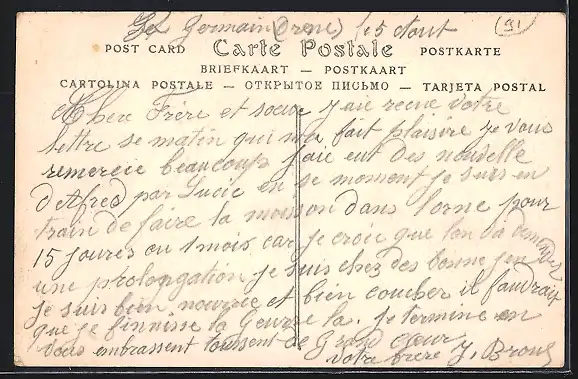 St Germain (Orne) le 5 Aout
91
POST CARD Carte Postale POSTKARTE
BRIEFKAART — POSTKAART
CARTOLINA POSTALE — ОТКРЫТОЕ ПИСЬМО — TARJETA POSTAL
Cher Frère et soeur J'aie recue Votre
lettre se matin qui ma fait plaisire je vous
remercie beaucoup J'aie eut des nouvelle
d'Afred par Lucie en se moment je suis en
train de faire la moisson dans l'orne pour
15 joures ou 1 mois car je croie que l'on va demander
une prolongation je suis chez des bonne gens
je suis bien nourrie et bien coucher il faudrait
que je finnisse la Geurre la. je termine en
vous embrassent toussent de Grand coeur
Votre frère J.